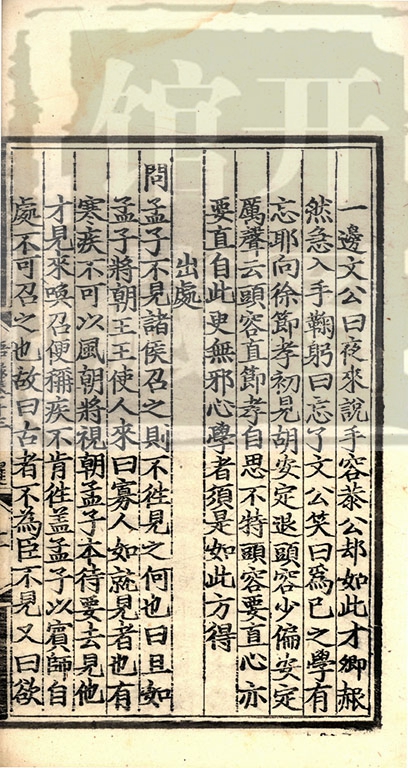 一邊文公曰夜來說手容恭公却如此才卿赧
然急入手鞠躬曰忘了文公笑曰爲已之學有
忘耶向徐節孝初見胡安定退頭容少偏安定
厲聲云頭容直節孝自思不特頭容要直心亦
要直自此更無邪心學者須是如此方得
出處
問孟子不見諸侯召之則不徃見之何也曰且如
孟子將朝王王使人來曰寡人如就見者也有
寒疾不可以風朝將視朝孟子本待要去見他
才見來喚召便稱疾不肯徃盖孟子以賓師自
處不可召之也故曰古者不為臣不見又曰欲